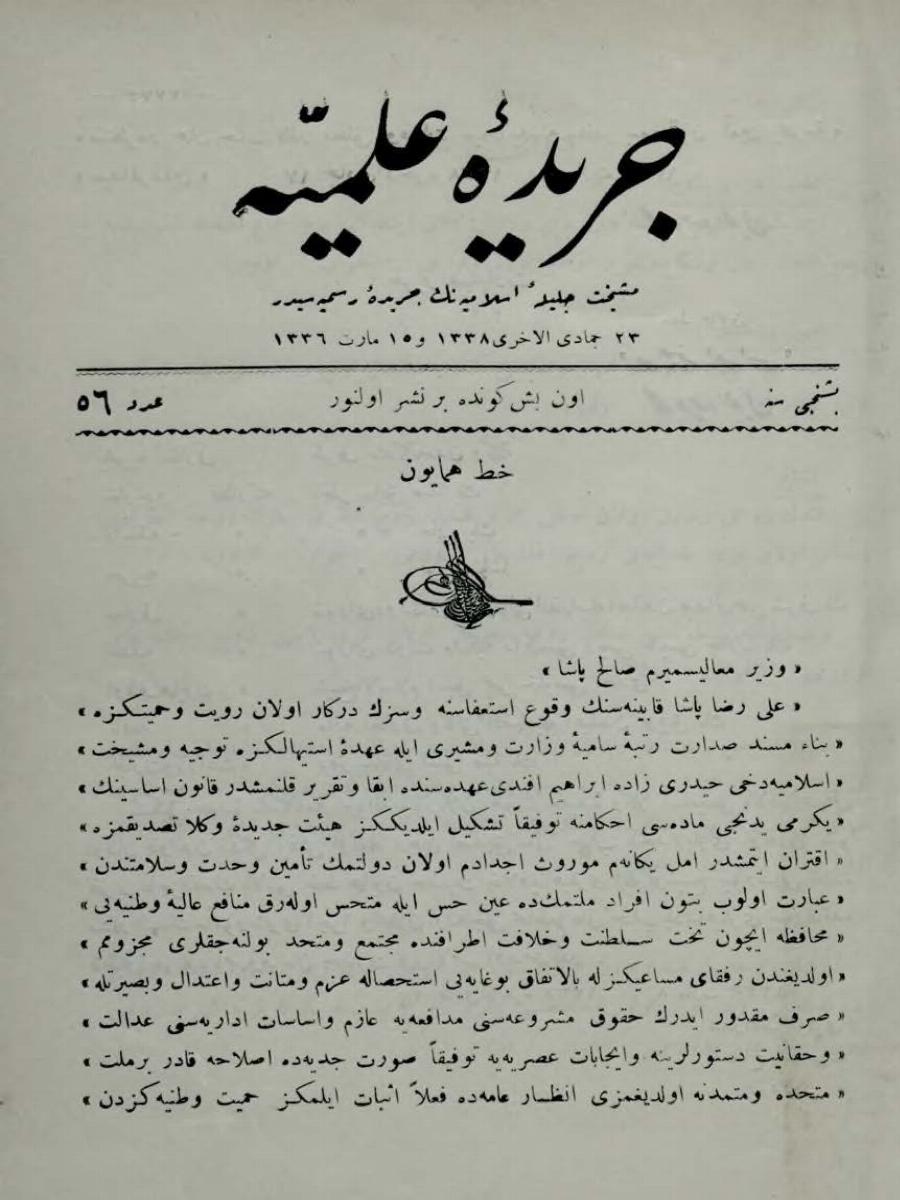 جريدهٔ علميّه
مشيخت جليلهٔ اسلاميه‌نك جريدهٔ رسميه‌سيدر
٢٣ جمادى الاخرى ١٣٣٨ و ١٥ مارت ١٣٣٦
بشنجى سنه اون بش كونده بر نشر اولنور عدد ٥٦
خط همايون
« وزير معاليسميرم صالح پاشا »
« على رضا پاشا قابينه‌سنك وقوع استعفاسنه وسزك دركار اولان رويت وحميتكزه »
« بناء مسند صدارت رتبهٔ ساميهٔ وزارت ومشيرى ايله عهدهٔ استيهالكزه توجيه ومشيخت »
« اسلاميه‌دخى حيدرى زاده ابراهيم افندى عهده‌سنده ابقا وتقرير قلنمشدر قانون اساسينك »
« يكرمى يدنجى ماده‌سى احكامنه توفيقاً تشكيل ايلديككز هيئت جديدهٔ وكلا تصديقمزه »
« اقتران ايتمشدر امل يكانه‌م موروث اجدادم اولان دولتمك تأمين وحدت وسلامتندن »
« عبارت اولوب بتون افراد ملتمك‌ده عين حس ايله متحس اوله‌رق منافع عاليهٔ وطنيه‌يى »
« محافظه ايچون تخت سلطنت وخلافت اطرافنده مجتمع ومتحد بولنه‌جقلرى مجزومم »
« اولديغندن رفقاى مساعيكزله بالاتفاق بوغايه‌يى استحصاله عزم ومتانت واعتدال وبصيرتله »
« صرف مقدور ايدرك حقوق مشروعه‌سنى مدافعه‌يه عازم واساسات اداريه‌سنى عدالت »
« وحقانيت دستورلرينه وايجابات عصريه‌يه توفيقاً صورت جديه‌ده اصلاحه قادر برملت »
« متحده ومتمدنه اولديغمزى انظار عامه‌ده فعلاً اثبات ايلمكز حميت وطنيه‌كزدن »